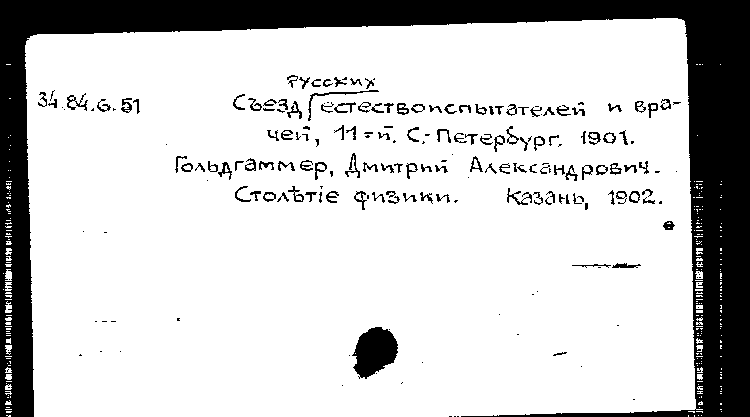 русских
34.84.6.51 Съезд естествоиспытателей и вра-
чей, 11-й. С.-Петербург. 1901.
Гольдгаммер, Дмитрий Александрович.
Столѣтіе физики. Казань, 1902.